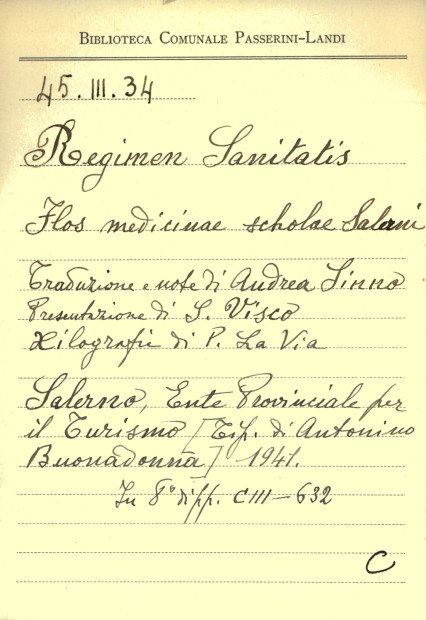 BIBLIOTECA COMUNALE PASSERINI-LANDI
45.III.34
Regimen Sanitatis
Flos medicinae scholae Salerni
Traduzione e note di Andrea Sinno
Presentazione di S. Visco
Xilografie di P. La Via
Salerno, Ente Provinciale per
il Turismo [Tip. di Antonino
Buonadonna] 1941.
In 8° di pp. CIII-632
C